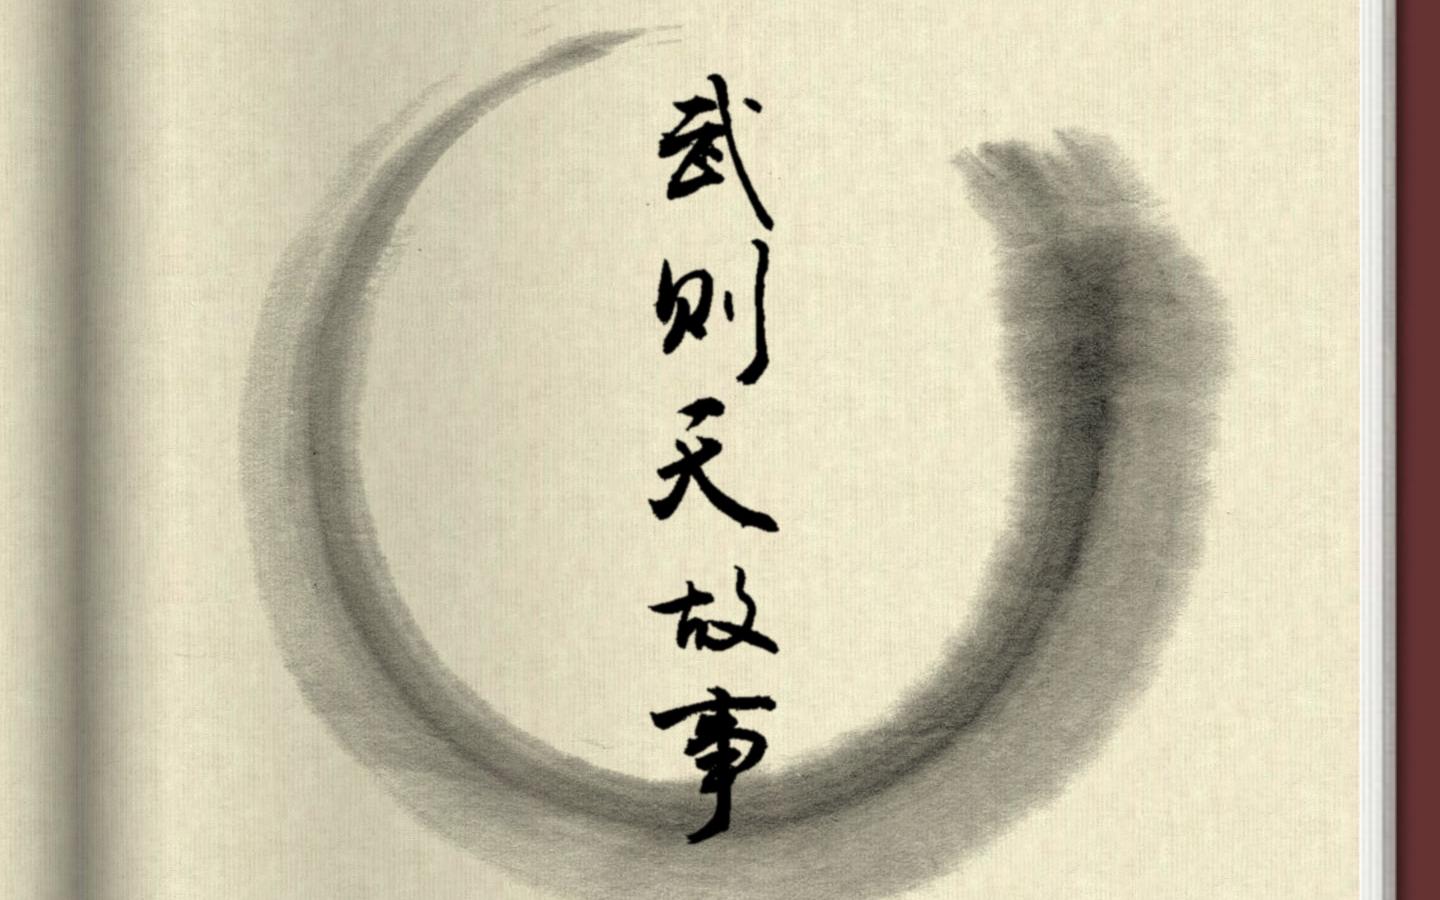 武则天故事